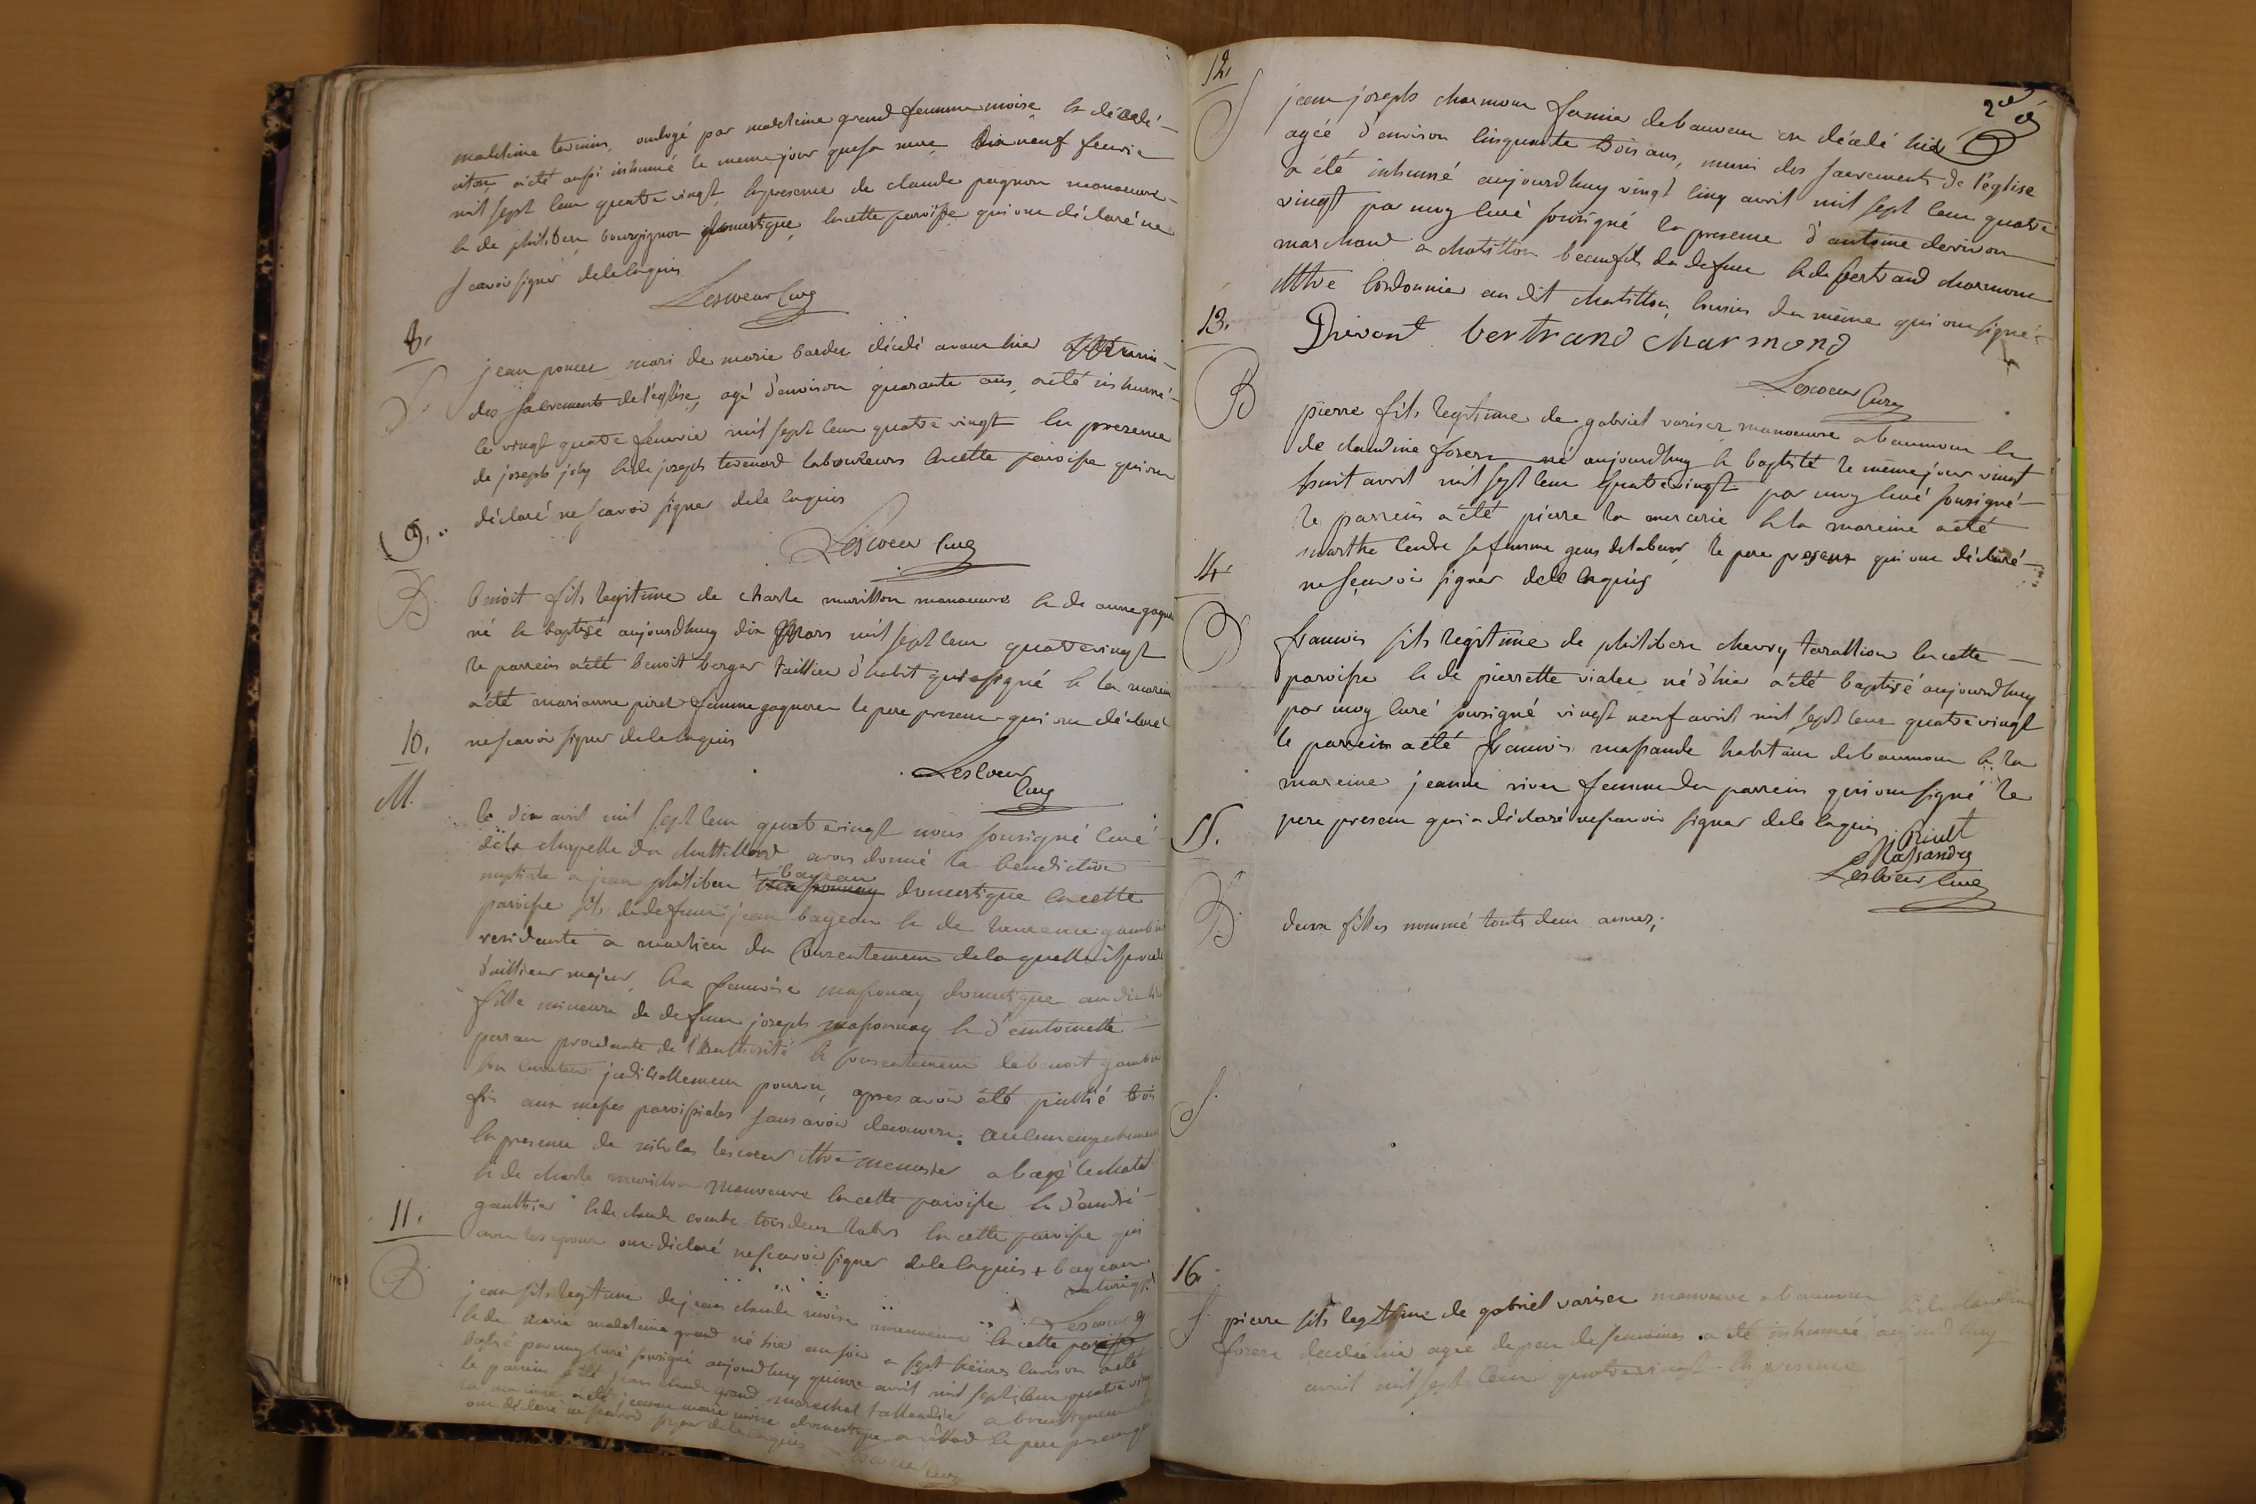 madelaine terrieu, ondoyé par madeleine grand femme moise et décédé
a été aussi inhumé le meme jour que sa mere dix neuf feuvrie
mil sept cent quatre vingt, en presence de claude pagnon manoeuvre
et de philibert bourgignon domestique en cette paroisse qui ont déclaré ne
scavoir signer de ce enquis
Lescoeur Curé
8.
S.
jean poncet mari de marie bardet décédé avant hier muni
des sacrements de l'église, agé d'environ quarante ans, a été inhumé
le vingt quatre feuvrie mil sept cent quatre vingt en presence
de joseph joly et de joseph tevenard laboureurs en cette paroisse qui ont
déclaré ne scavoir signer de ce enquis
Lescoeur Curé
9.
B.
benoit fils legitime de charle murillon manoeuvre et de anne gagneu
né et baptisé aujourdhuy dix Mars mil sept cent quatre vingt
le parrein a été benoit berger taillieur d'habit qui a signé et la mareine
a été marianne piret femme gagneur le pere present qui ont déclaré
ne scavoir signer de ce enquis
Lescoeur
Curé
10.
M.
le dix avril mil sept cent quatre vingt nous sousigné curé
de la chapelle du chattellard avons donné la benediction
+ bajean
nuptiale a jean philibert domestique en cette
paroisse fils de defunt jean bajean et de
residante a marlieu du Consentement de laquelle il procede
d'aillieur majeur, et a francoise massonnay domestique
fille mineure de defunt joseph massonnay et d'antoinette
perran procedante de l'authorité et consentement de benoit
son curateur judiciallement pourvu, apres avoir été publié trois
fois aux messes paroissiales sans avoir decouvert aucun empechement
en presence de nicolas lescoeur Mtre menusier a bagé le chatel
et de charle murillon manoeuvre en cette paroisse et d'andré
gauthier et de claude combe tous deux en cette paroisse qui
avec les epoux ont declaré ne scavoir signer de ce enquis + bajean
Lescoeur
11.
B.
jean fils legitime de jean claude moise manoeuvre en cette paroisse
et de marie madeleine grand né hier au soir a sept heures environ a été
batisé par moy curé sousigné aujourdhuy quinze avril mil sept cent quatre vingt
le parrein a été jean claude grand marechal tallandier a
la mareine a été jeanne marie moise domestique a le pere present
ont déclaré ne scavoir signer de ce enquis
12.
S
jean joseph charmont fermier de baumont est décédé hier
agée d'environ cinquante trois ans, muni des sacrements de l'église
a été inhumé aujourdhuy vingt cinq avril mil sept cent quatre
vingt par moy curé sousigné en presence d'antoine derivon
marchand a chatillon beaufils du defunt et de bertrand charmont
Mtre cordonnier au dit chatillon, cousin du même qui ont signé
Drivont bertrand charmond
Lescoeur Curé
13.
B
pierre fils legitime de gabriel varises manoeuvre a baumont et
de claudine forest né aujourdhuy et baptisé le même jour vingt
huit avril mil sept cent quatre vingt par moy curé sousigné
le parrein a été pierre la mercerie et la mareine a été
marthe cendre sa femme gens de labeur, le pere present qui ont déclaré
ne scavoir signer de ce enquis
14.
B
francois fils legitime de philibert chevry tarallion en cette
paroisse et de pierrette vialet né d'hier a été baptisé aujourdhuy
par moy curé sousigné vingt neuf avril mil sept cent quatre vingt
le parrein a été francois massande habitant de baumont et la
mareine jeanne rivet femme du parrein qui ont signé le
pere present qui a déclaré ne scavoir signer de ce enquis
Rivet
Massandes
Lescoeur Curé
15.
B
deux filles nommé touts deux annes;
S.
16.
S.
pierre fils legitime de gabriel varises manoeuvre a baumont et de claudine
forest decedé hier agé de peu de semaines a été inhumée aujourdhuy
avril mil sept cent quatre vingt en presence